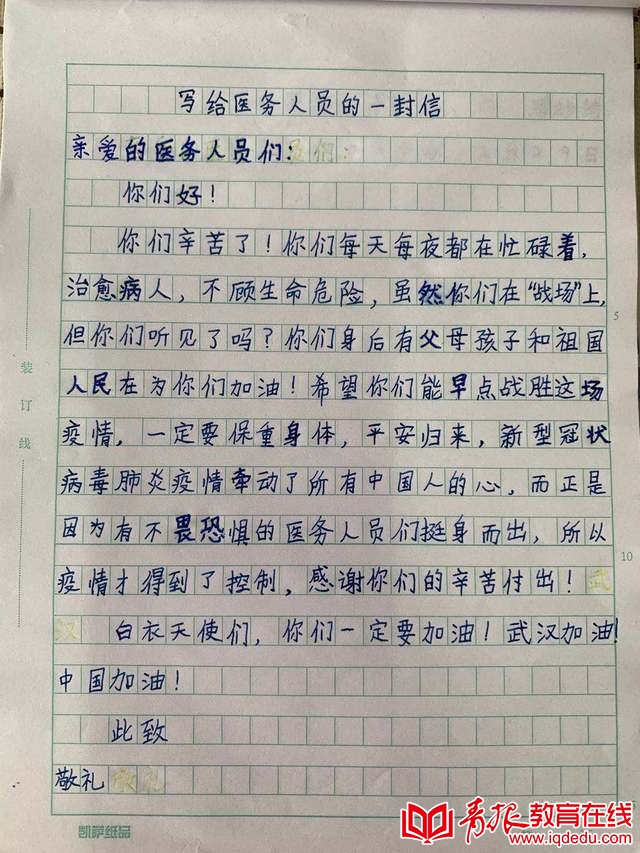 写给医务人员的一封信
亲爱的医务人员们：
你们好！
你们辛苦了！你们每天每夜都在忙碌着，
治愈病人，不顾生命危险，虽然你们在“战场”上，
但你们听见了吗？你们身后有父母孩子和祖国
人民在为你们加油！希望你们能早点战胜这场
疫情，一定要保重身体，平安归来，新型冠状
病毒肺炎疫情牵动了所有中国人的心，而正是
因为有不畏恐惧的医务人员们挺身而出，所以
疫情才得到了控制，感谢你们的辛苦付出！
白衣天使们，你们一定要加油！武汉加油！
中国加油！
此致
敬礼
装订线
5
10
凯萨纸品
青报教育在线
www.iqdedu.com